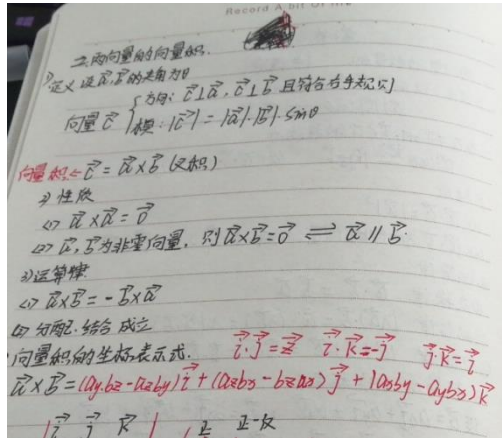 Record A bit Of
二.两向量的向量积.
1) 定义 设a⃗,b⃗的夹角为θ
向量c⃗ { 方向: c⃗⊥a⃗, c⃗⊥b⃗ 且符合右手规则
模: |c⃗| = |a⃗|·|b⃗|·sinθ
向量积⇐ c⃗ = a⃗×b⃗ (叉积)
2) 性质
<1> a⃗×a⃗ = 0⃗
<2> a⃗, b⃗为非零向量, 则a⃗×b⃗=0⃗ ⇌ a⃗∥b⃗.
3) 运算律
<1> a⃗×b⃗ = -b⃗×a⃗
<2> 分配.结合 成立
向量积的坐标表示式. i⃗·j⃗=k⃗ i⃗·k⃗=-j⃗ j⃗·k⃗=i⃗
a⃗×b⃗=(aybz-azby)i⃗+(azbx-bzax)j⃗+(axby-aybx)k⃗
| i⃗ j⃗ k⃗ |